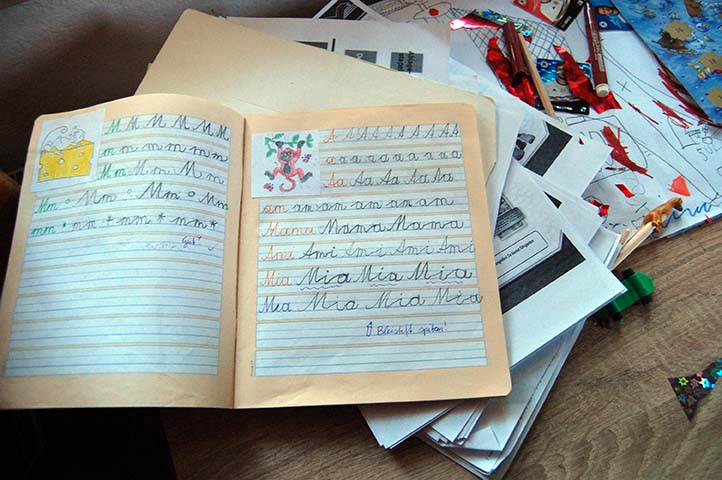 M M M M M M
m m m m m m
Mm Mm Mm Mm
Mm ° Mm ° Mm ° Mm
mm * mm * mm * mm *
Gut!
A A A A A A A A A
a a a a a a a a
Aa Aa Aa Aa
am am am am am am
Mama Mama Mama
Ami Ami Ami Ami Ami
Mia Mia Mia Mia
Mia Mia Mia Mia
⇧ Bleistift spitzen!